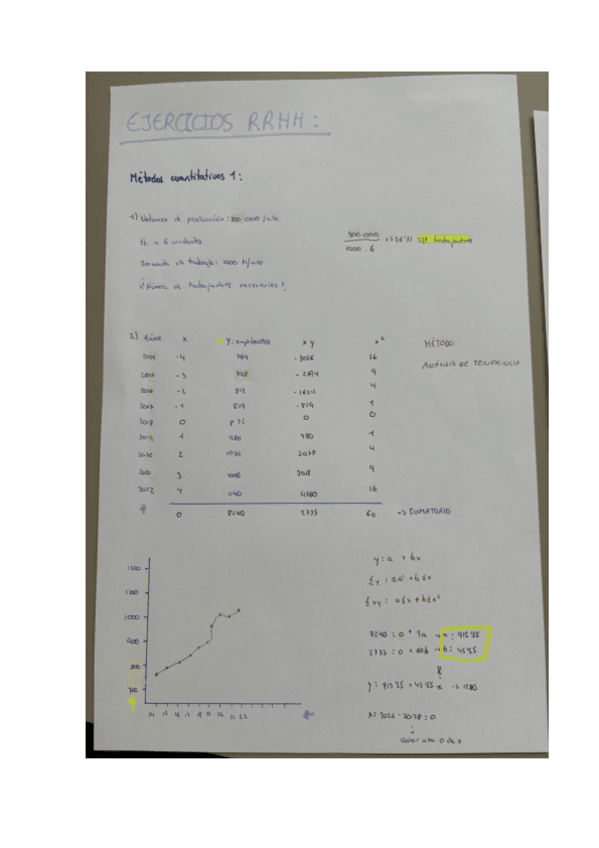 EJERCICIOS RRHH:
Métodos cuantitativos 1:
1) Volumen de producción: 300.000/año
1h → 6 unidades
Jornada de trabajo: h/año
¿Número de trabajadores necesarios?
300.000
trabajadores
2) Años x Y: empleados xy x²
-4 16
-3 9
2016 -2 812 -1624 4
2017 -1 829 -829 1
2018 0 0 0
2019 1 980 980 1
2020 2 1039 2078 4
2021 3 1006 3018 9
2022 4 1140 4560 16
0 8240 2733 60 → SUMATORIO
MÉTODO
ANÁLISIS DE TENDENCIA
1200
1100
1000
900
800
700
14 15 16 17 18 19 20 21 22
y = a + bx
Σy = aN + bΣx
Σxy = aΣx + bΣx²
8240 = 0 + 9a → a = 915'55
2733 = 0 + 60b → b = 45'55
8
y = 915'55 + 45'55 x →
x = 2026 - 2018 = 0